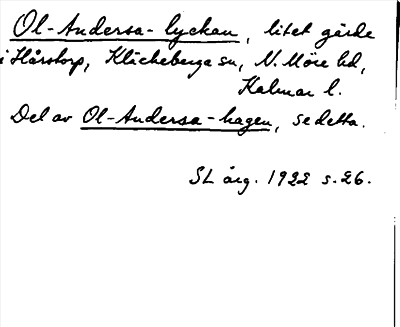 Ol-Andersa-lyckan, litet gärde
i Hårstorp, Kläckeberga sn, N. Möre hd,
Kalmar l.
Del av Ol-Andersa-hagen, se detta.
SL årg. 1922 s. 26.